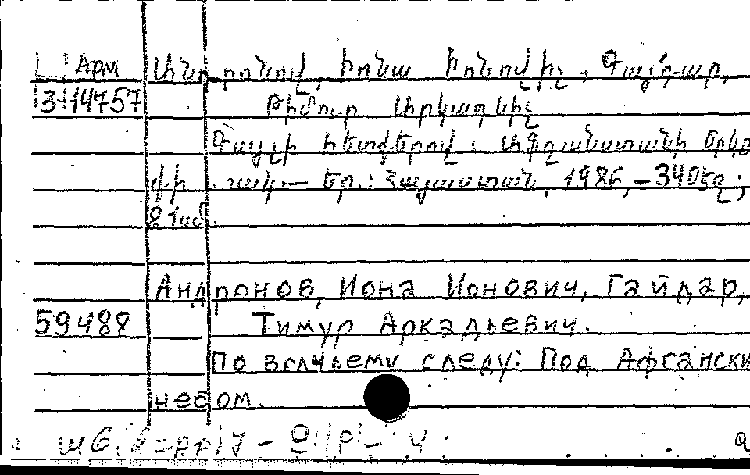 Арм Անդրոնով, Իոնա Իոնովիչ, Գայդար,
3-14757 Թիմուր Արկադևիչ
Գայլի հետքերով: Աֆղանստանի երկն
քի տակ.— Եր.: Հայաստան, 1986,—340 էջ;
21 սմ.
Андронов, Иона Ионович, Гайдар,
59488 Тимур Аркадьевич.
По волчьему следу: Под Афгански
небом.